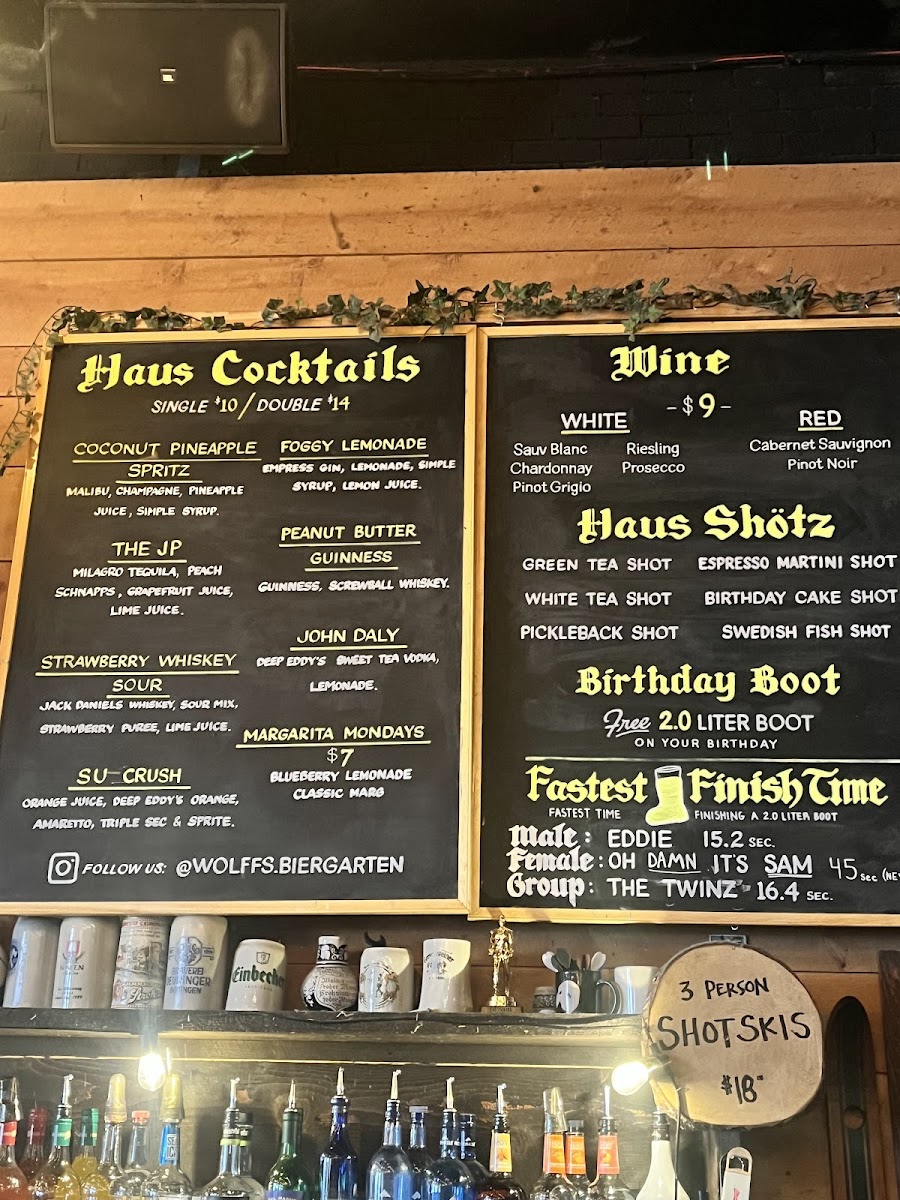 Haus Cocktails
SINGLE $10 / DOUBLE $14
COCONUT PINEAPPLE
SPRITZ
MALIBU, CHAMPAGNE, PINEAPPLE
JUICE, SIMPLE SYRUP.
THE JP
MILAGRO TEQUILA, PEACH
SCHNAPPS, GRAPEFRUIT JUICE,
LIME JUICE.
STRAWBERRY WHISKEY
SOUR
JACK DANIELS WHISKEY, SOUR MIX,
STRAWBERRY PUREE, LIME JUICE.
SU CRUSH
ORANGE JUICE, DEEP EDDY'S ORANGE,
AMARETTO, TRIPLE SEC & SPRITE.
FOGGY LEMONADE
EMPRESS GIN, LEMONADE, SIMPLE
SYRUP, LEMON JUICE.
PEANUT BUTTER
GUINNESS
GUINNESS, SCREWBALL WHISKEY.
JOHN DALY
DEEP EDDY'S SWEET TEA VODKA,
LEMONADE.
MARGARITA MONDAYS
$7
BLUEBERRY LEMONADE
CLASSIC MARG
FOLLOW US: @WOLFFS.BIERGARTEN
Wine
- $9 -
WHITE
Sauv Blanc
Chardonnay
Pinot Grigio
Riesling
Prosecco
RED
Cabernet Sauvignon
Pinot Noir
Haus Shötz
GREEN TEA SHOT ESPRESSO MARTINI SHOT
WHITE TEA SHOT BIRTHDAY CAKE SHOT
PICKLEBACK SHOT SWEDISH FISH SHOT
Birthday Boot
Free 2.0 LITER BOOT
ON YOUR BIRTHDAY
Fastest Finish Time
FASTEST TIME FINISHING A 2.0 LITER BOOT
Male: EDDIE 15.2 SEC.
Female: OH DAMN IT'S SAM 45 sec
Group: THE TWINZ 16.4 SEC.
Einbecher
3 PERSON
SHOTSKIS
$18